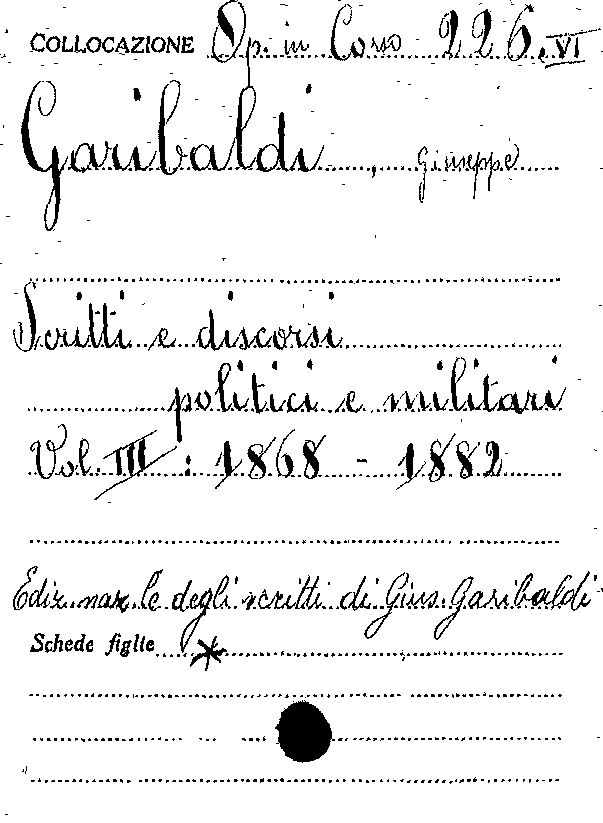 COLLOCAZIONE Op. in Corso 226. VI
Garibaldi, Giuseppe
Scritti e discorsi
politici e militari
Vol. III : 1868 - 1882
Ediz. naz. le degli scritti di Gius. Garibaldi
Schede figlie *